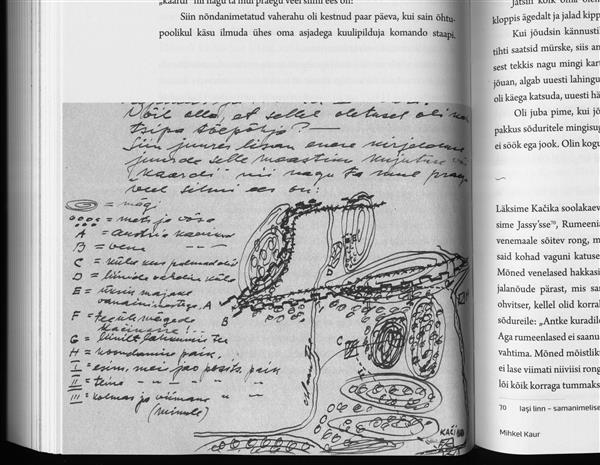 „kaardi" nii nagu ta mul praegu veel silmi ees on:
Siin nõndanimetatud vaherahu oli kestnud paar päeva, kui sain õhtu-
poolikul käsu ilmuda ühes oma asjadega kuulipilduja komando staapi.
Võib olla, et sellel oletusel oli ka
tsipa tõepõhja? —
Siin juures lisan enese kirjelduse
juurde selle maastiku kujutuse
"kaardi" nii nagu ta mul praegu
veel silmi ees on:
= mägi
= mets ja võsa
A = austria kaevikud
B = vene — " —
C = küla kus
D = liinide vaheline küla
E =
F =
G = liinilt tee
H = koondamise paik.
I = esim. meie jao posits. paik
II = teine — " — " — "
III = kolmas ja viimane " "
(minule)
A
B
C
D
KAČI
Jätsin kõik oma
kloppis ägedalt ja jalad kipp
Kui jõudsin kännusti
tihti saatsid mürske, siis an
sest tekkis nagu mingi kart
jõuan, algab uuesti lahingu
oli käega katsuda, uuesti hä
Oli juba pime, kui jõ
pakkus sõduritele mingisug
ei söök ega jook. Olin kogu
Läksime Kačika soolakaev
sime Jassy'sse70, Rumeenia
venemaale sõitev rong, m
said kohad vaguni katuse
Mõned venelased hakkasi
jalanõude pärast, mis sa
ohvitser, kellel olid korral
sõdureile: „Antke kuradile
Aga rumeenlased ei saanu
vahtima. Mõned mõistliku
ei lase viimati niiviisi rong
lõi kõik korraga tummaks
70 Iaşi linn – samanimelise
Mihkel Kaur